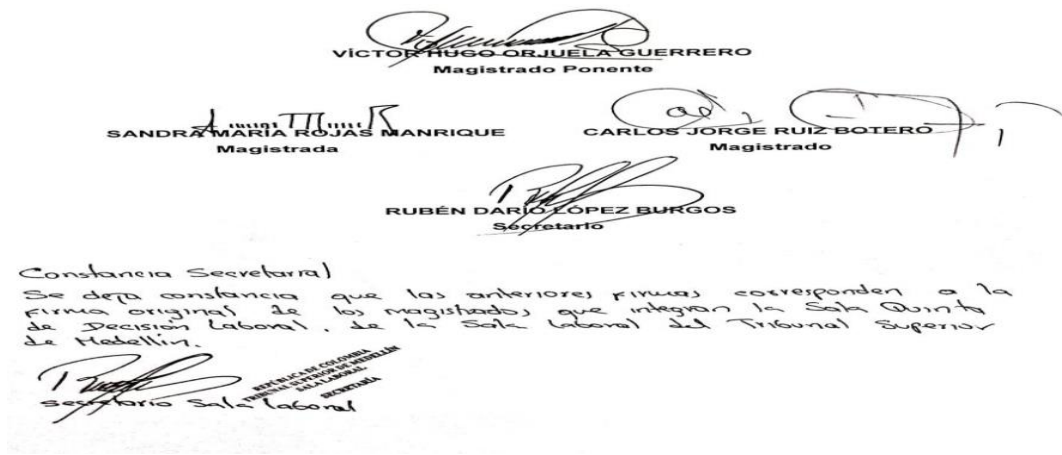 VÍCTOR HUGO ORJUELA GUERRERO
Magistrado Ponente
SANDRA MARÍA ROJAS MANRIQUE
CARLOS JORGE RUIZ BOTERO
Magistrada
Magistrado
RUBÉN DARÍO LÓPEZ BURGOS
Secretario
Constancia Secretarial
Se deja constancia que las anteriores firmas corresponden a la
firma original de los magistrados que integran la Sala Quinta
de Decisión Laboral, de la Sala Laboral del Tribunal Superior
de Medellín.
REPÚBLICA DE COLOMBIA
TRIBUNAL SUPERIOR DE MEDELLÍN
SALA LABORAL
SECRETARÍA
Secretario Sala Laboral